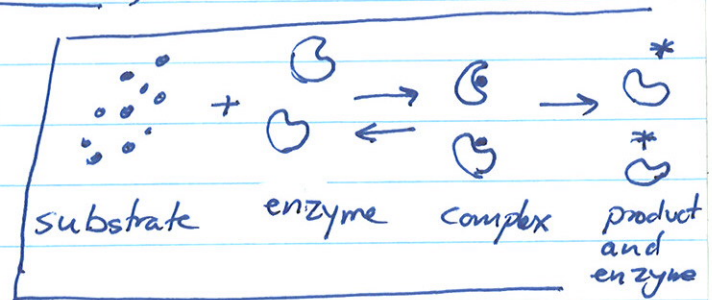 +
substrate
enzyme
complex
product
and
enzyme